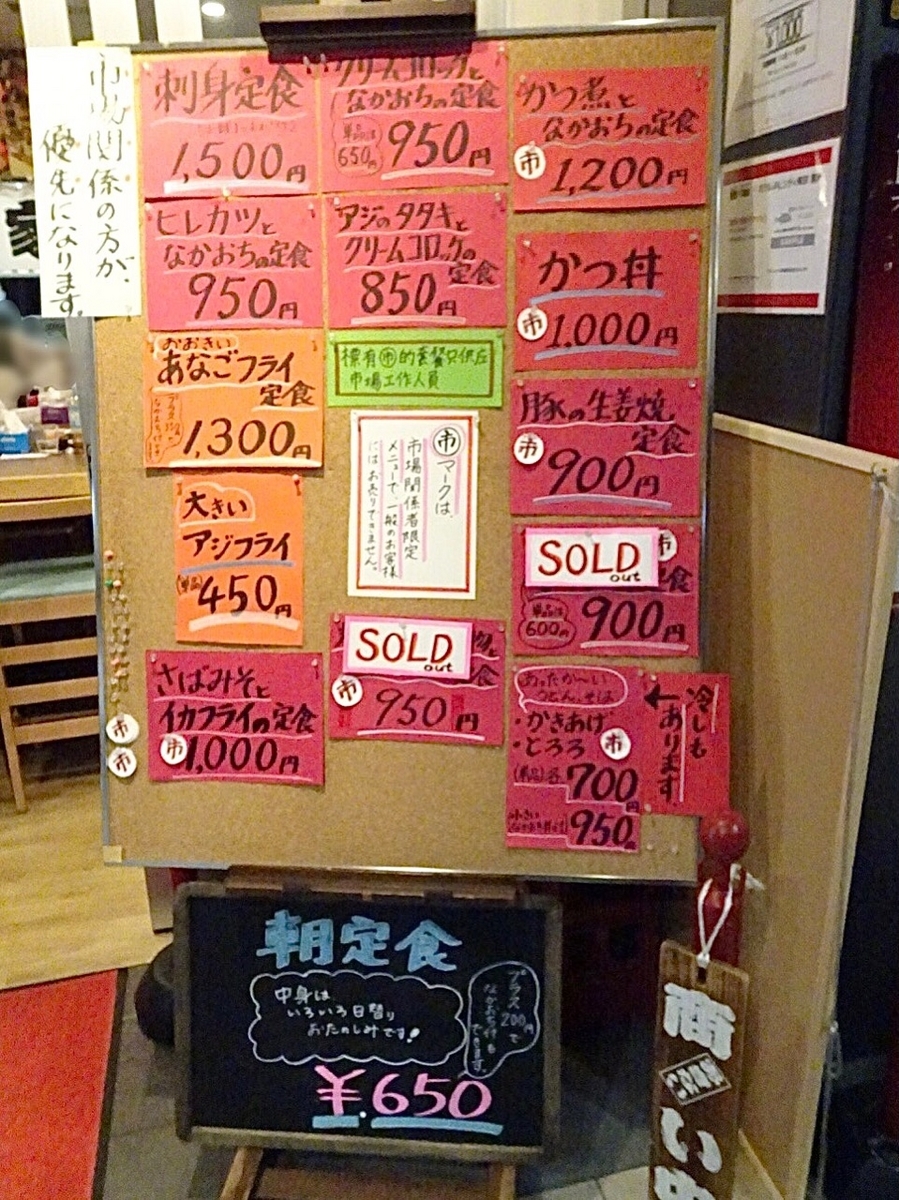 市場関係の方が、
優先になります。
刺身定食
1,500円
クリームコロッケと
なかおちの定食
単品は
650円
950円
かつ煮と
なかおちの定食
市
1,200円
ヒレカツと
なかおちの定食
950円
アジのタタキと
クリームコロッケの
定食
850円
かつ丼
市
1,000円
おおきい
あなごフライ
定食
1,300円
標有市的套餐只供应
市場工作人員
豚の生姜焼
定食
市
900円
大きい
アジフライ
(単品)
450円
市マークは、
市場関係者限定
メニューで、一般のお客様
にはお売りできません。
SOLD
out
市
定食
単品は
600円
900円
さばみそと
イカフライの定食
市
1,000円
SOLD
out
市
950円
あったか〜い
うどん、そば
・かきあげ
・とろろ
市
(単品)各
700円
950円
←冷しも
あります
市
市
朝定食
中身は
いろいろ日替り
おたのしみです!
プラス200円で
なかおち付も
できます。
¥650
商
い中